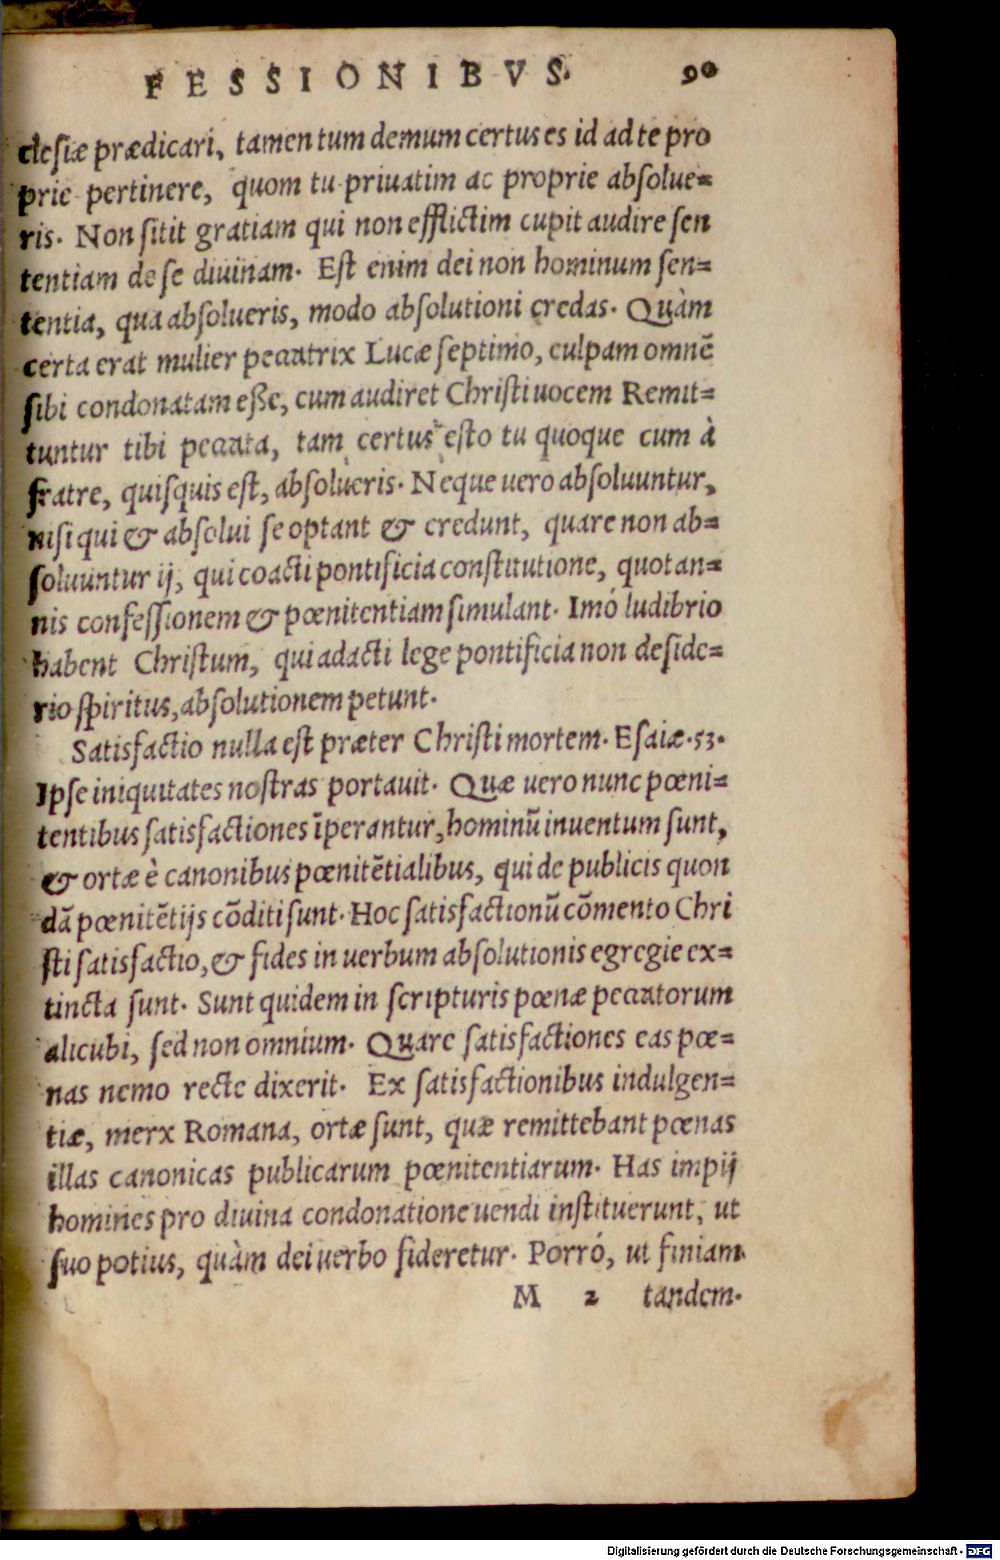 FESSIONIBVS. 90
clesiæ prædicari, tamen tum demum certus es id ad te pro
prie pertinere, quom tu priuatim ac proprie absolue=
ris. Non sitit gratiam qui non efflictim cupit audire sen
tentiam de se diuinam. Est enim dei non hominum sen=
tentia, qua absolueris, modo absolutioni credas. Quàm
certa erat mulier peccatrix Lucæ septimo, culpam omnē
sibi condonatam eße, cum audiret Christi uocem Remit=
tuntur tibi peccata, tam certus esto tu quoque cum à
fratre, quisquis est, absolueris. Neque uero absoluuntur,
nisi qui & absolui se optant & credunt, quare non ab=
soluuntur ij, qui coacti pontificia constitutione, quotan=
nis confessionem & pœnitentiam simulant. Imó ludibrio
habent Christum, qui adacti lege pontificia non deside=
rio spiritus, absolutionem petunt.
Satisfactio nulla est præter Christi mortem. Esaiæ.53.
Ipse iniquitates nostras portauit. Quæ uero nunc pœni=
tentibus satisfactiones īperantur, hominū inuentum sunt,
& ortæ è canonibus pœnitētialibus, qui de publicis quon
dā pœnitētijs cōditi sunt. Hoc satisfactionū cōmento Chri
sti satisfactio, & fides in uerbum absolutionis egregie ex=
tincta sunt. Sunt quidem in scripturis pœnæ peccatorum
alicubi, sed non omnium. Quare satisfactiones eas pœ=
nas nemo recte dixerit. Ex satisfactionibus indulgen=
tiæ, merx Romana, ortæ sunt, quæ remittebant pœnas
illas canonicas publicarum pœnitentiarum. Has impij
homines pro diuina condonatione uendi instituerunt, ut
suo potius, quàm dei uerbo fideretur. Porró, ut finiam
M 2 tandem.
Digitalisierung gefördert durch die Deutsche Forschungsgemeinschaft - DFG